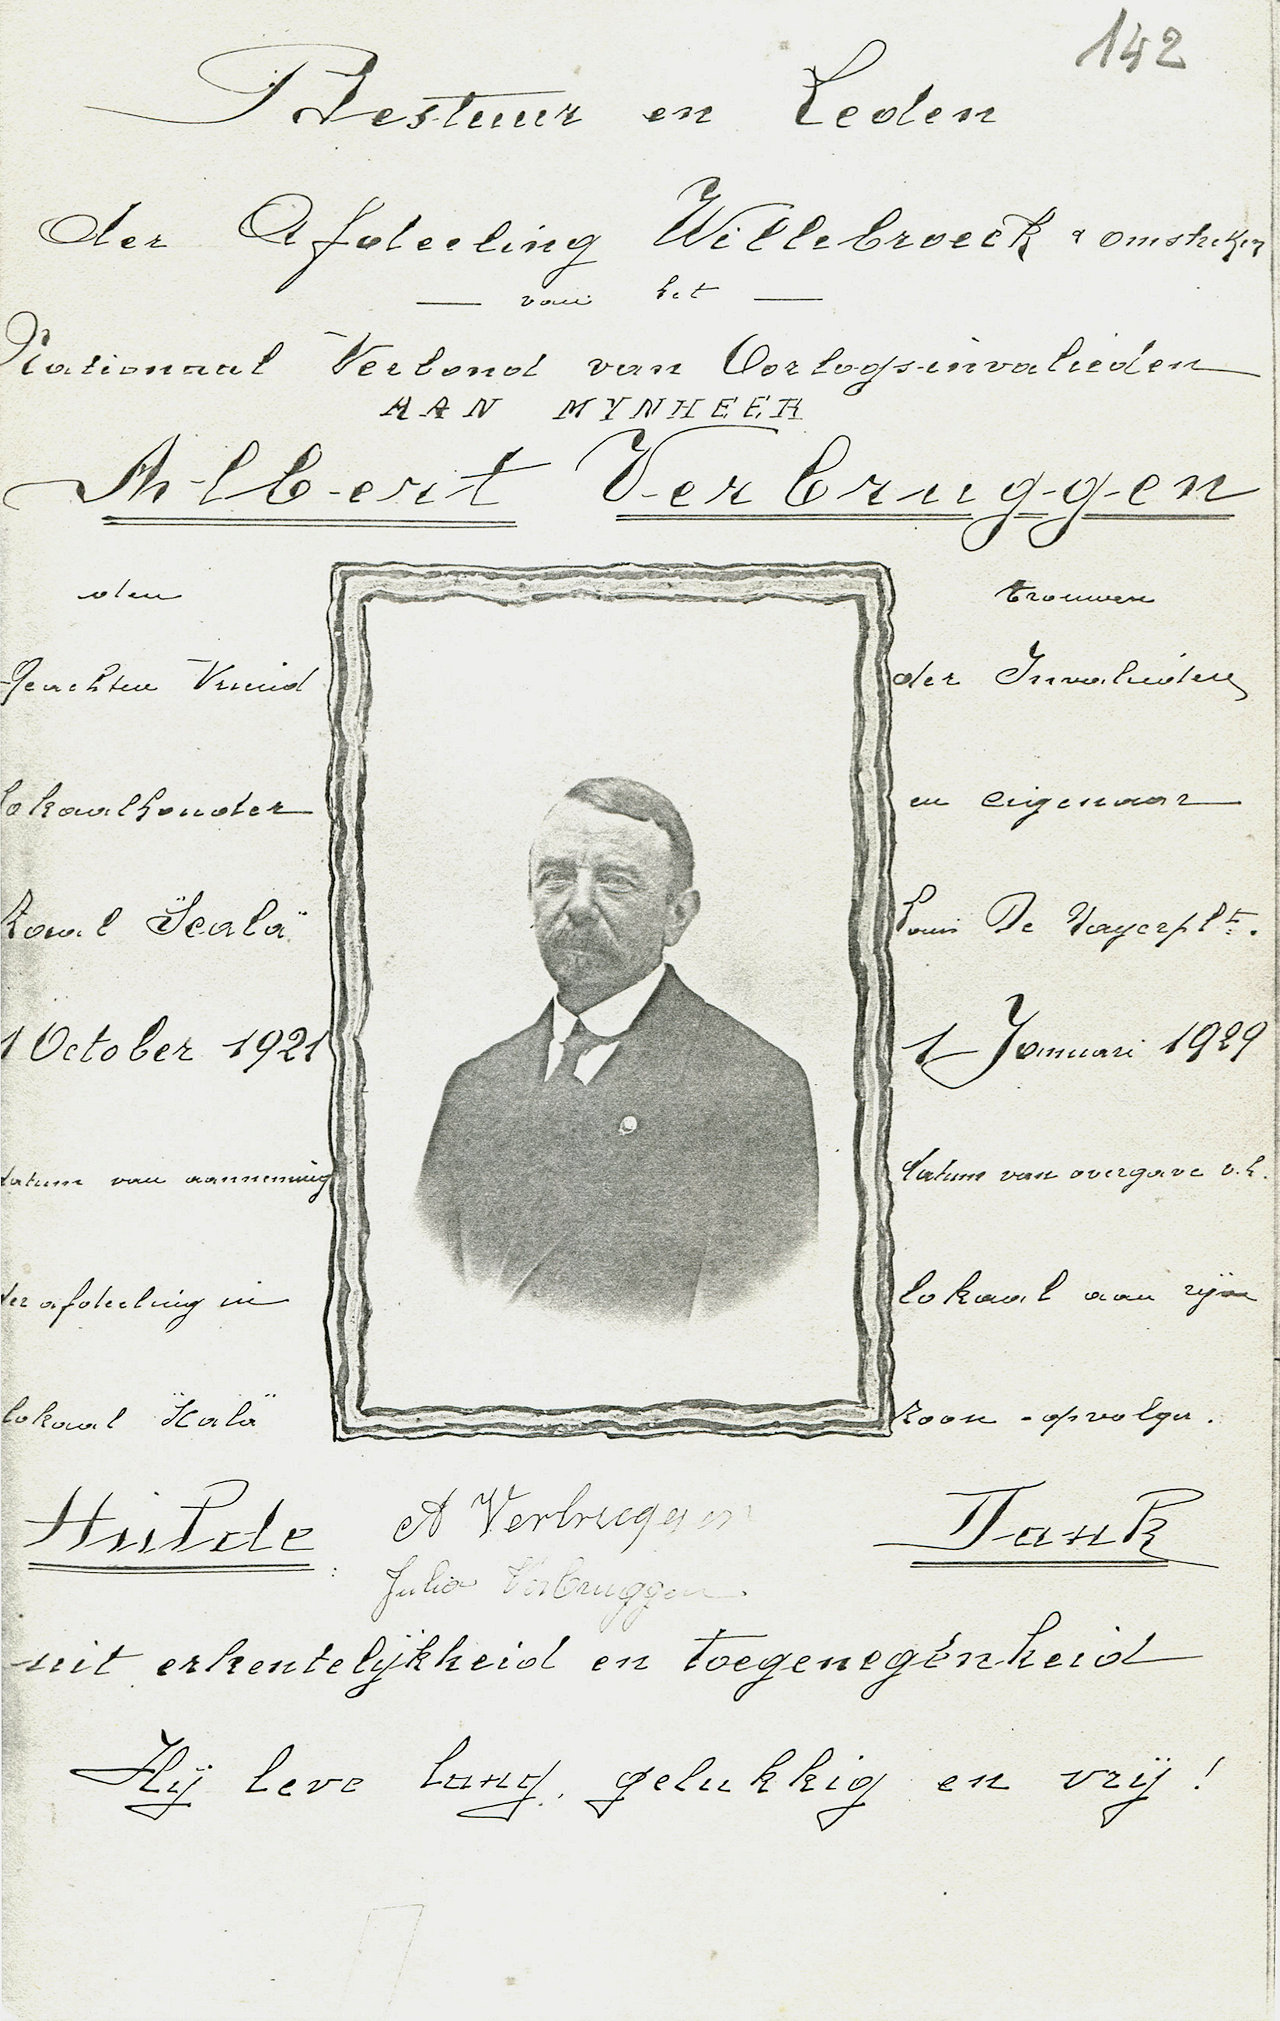 142
Bestuur en Leden
der Afdeeling Willebroeck & omstreken
van het
Nationaal Verbond van Oorlogsinvalieden
AAN MYNHEER
Albert Verbruggen
den trouwen
Geachten Vriend der Invalieden
lokaalhouder en eigenaar
Zaal "Scala" Louis De Naeyerplts.
1 October 1921 1 Januari 1929
datum van aanneming datum van overgave v.h.
der afdeeling in lokaal aan zijn
lokaal "Scala" zoon-opvolger.
Hulde Dank
A Verbruggen
Julia Verbruggen
uit erkentelijkheid en toegenegenheid
Hij leve lang, gelukkig en vrij!